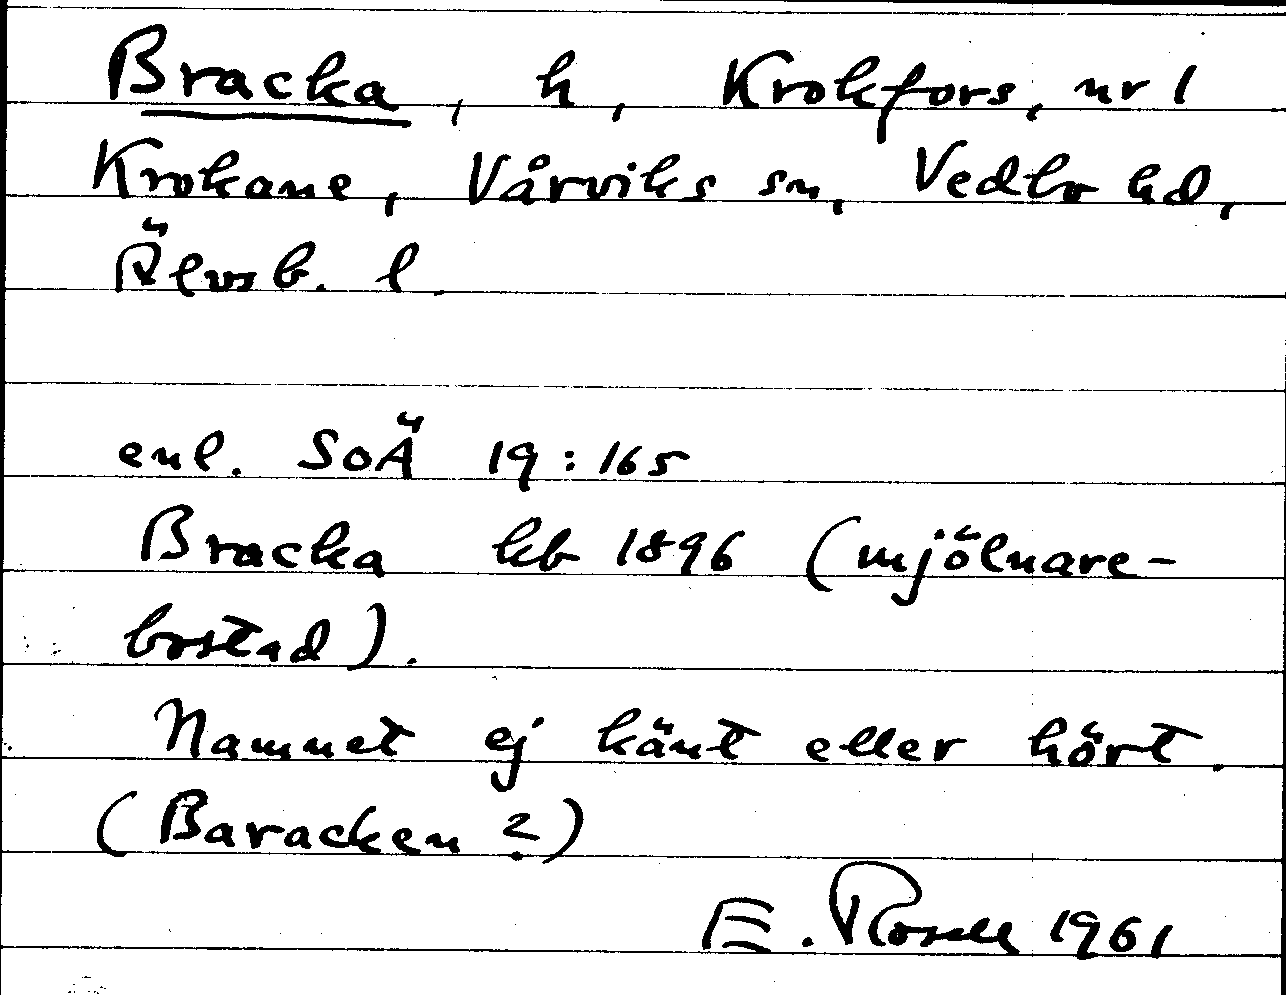 Bracka, h, Krokfors, nr 1
Krokane, Vårviks sn, Vedbo hd,
Älvsb. l.
enl. SoÄ 19:165
Bracka kb 1896 (mjölnare-
bostad).
Namnet ej känt eller hört.
(Baracken?)
E. Rosell 1961